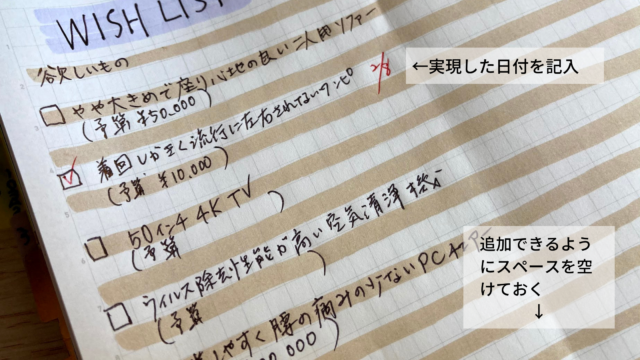 WISH LIST
欲しいもの
やや大きめで座り心地の良い二人用ソファー
(予算 ¥50,000)
2/8
←実現した日付を記入
着回しがきく流行に左右されないワンピ
(予算 ¥10,000)
50インチ 4K TV
(予算 )
ウィルス除去性能が高い空気清浄機
(予算 )
しやすく腰の痛みの少ないPCチェアー
000)
追加できるよう
にスペースを空
けておく
↓